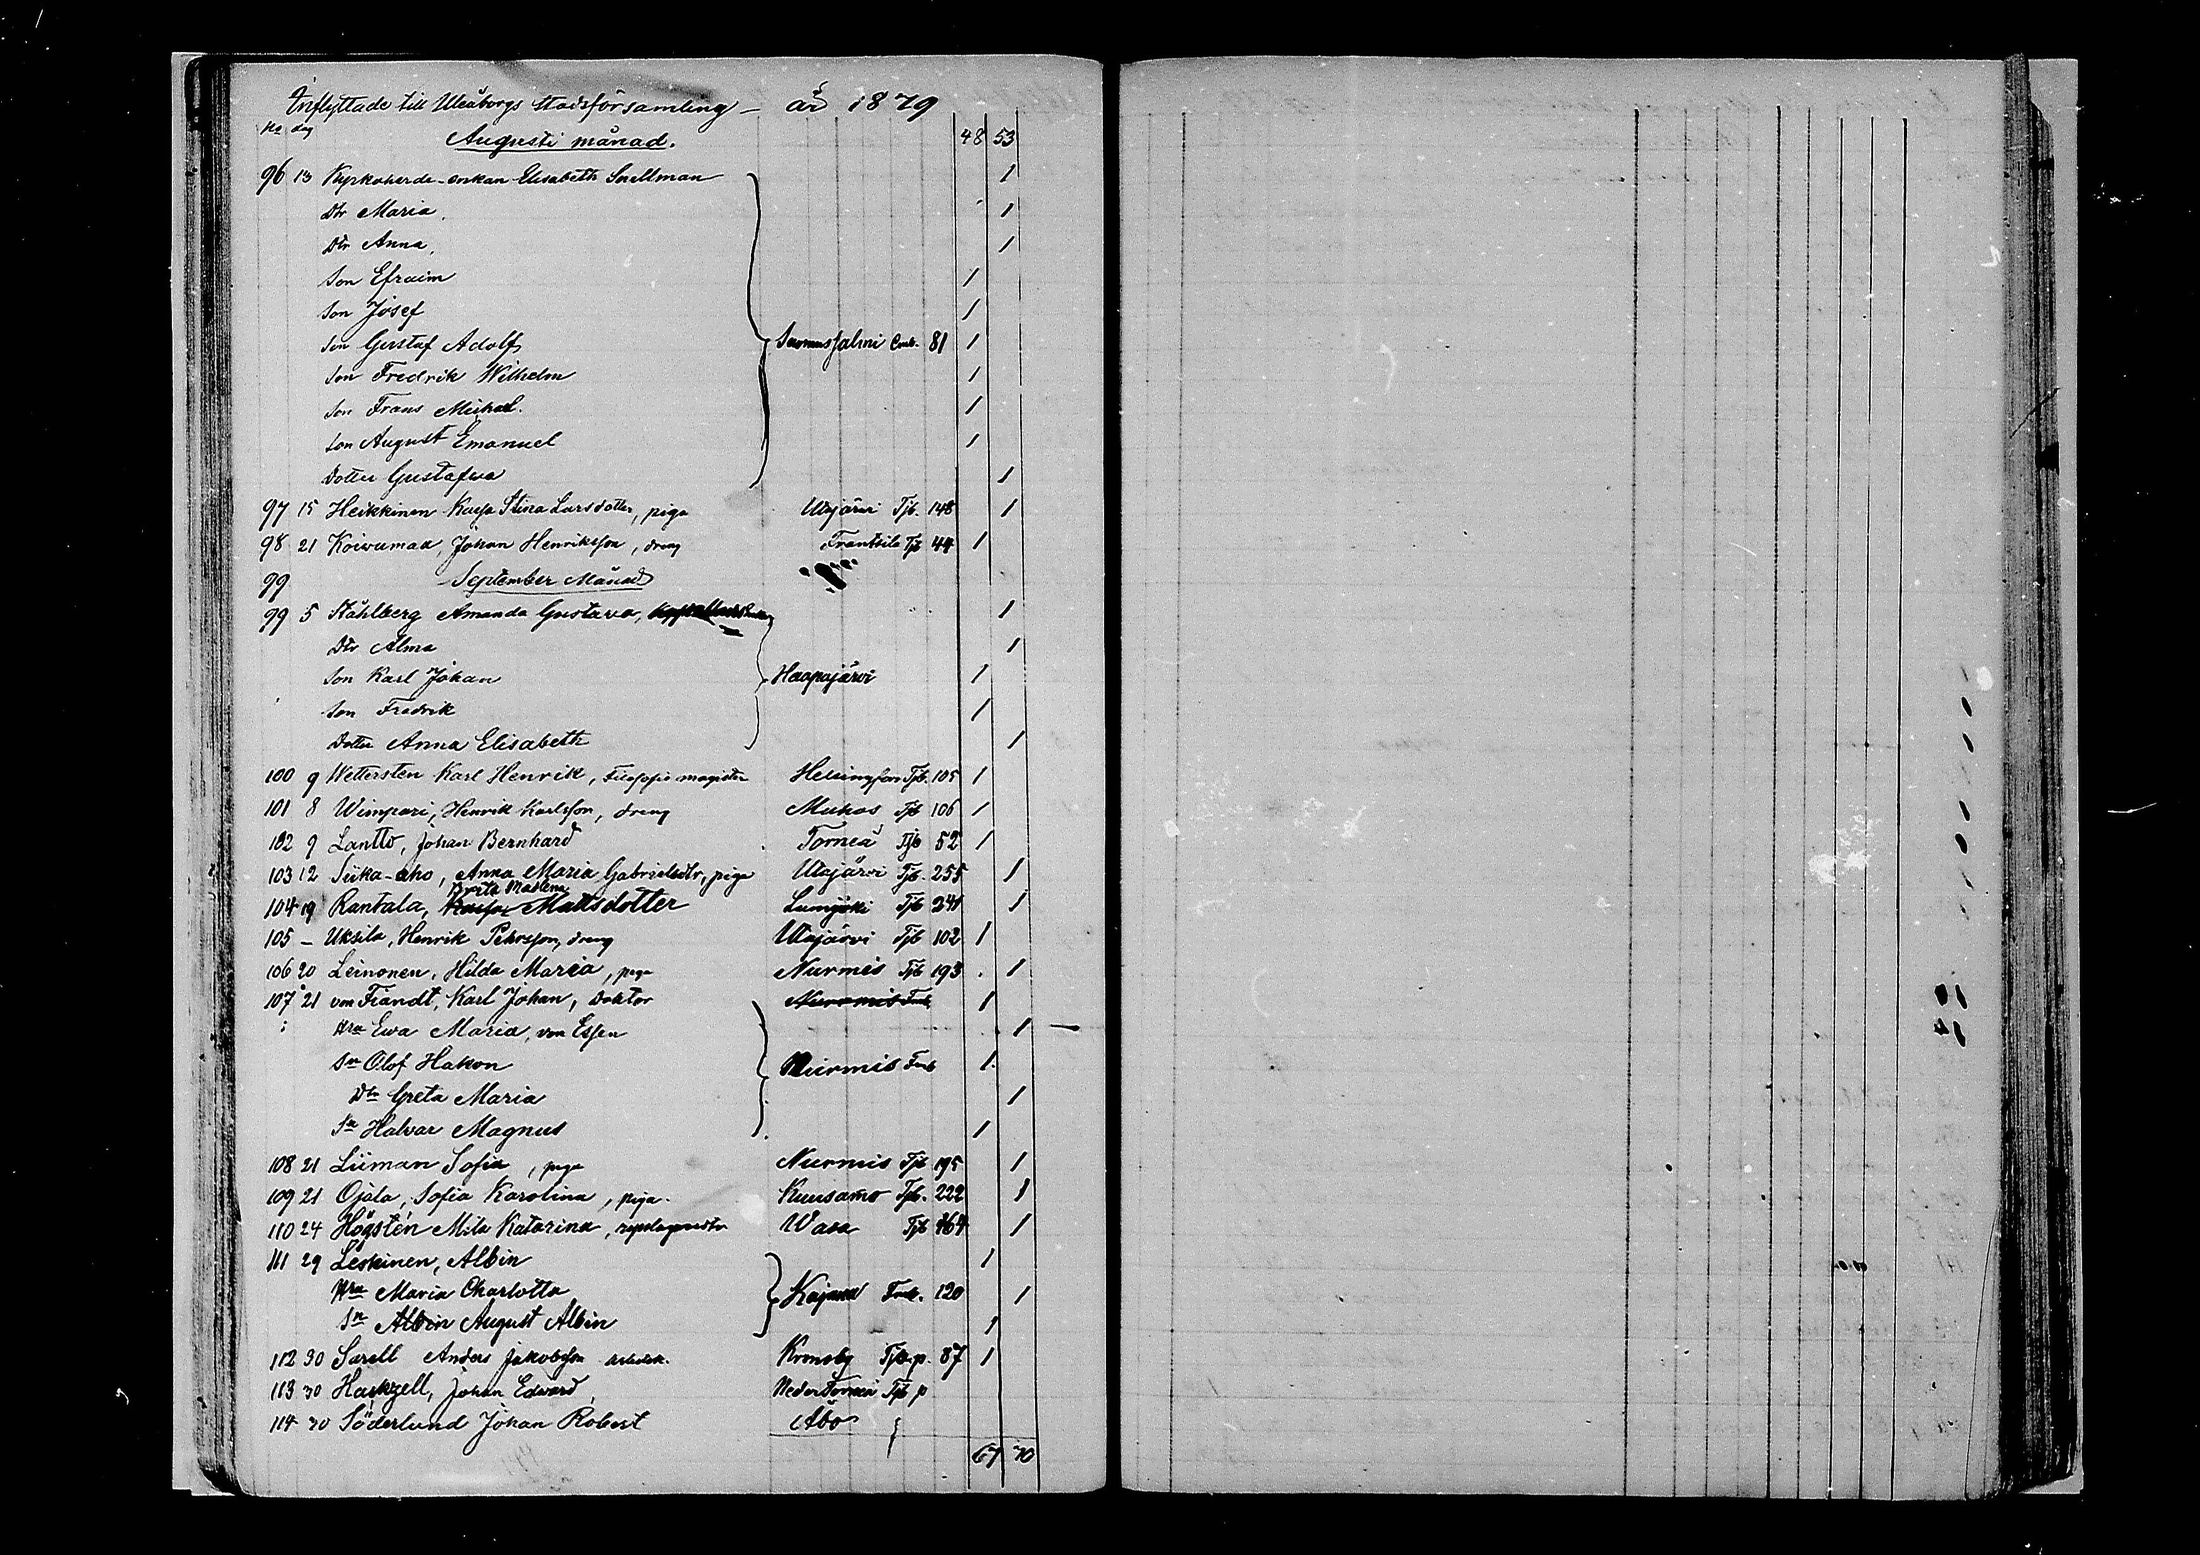 Inflyttade till Uleåborgs stadsförsamling – år 1879
No dag
Augusti månad. 48 53
96 13 Kyrkoherde-enkan Elisabeth Snellman 1
Dtr Maria 1
Dtr Anna 1
Son Efraim 1
Son Josef 1
Son Gustaf Adolf Suomussalmi 81 1
Son Fredrik Wilhelm 1
Son Frans Mickael. 1
Son August Emanuel 1
Dotter Gustafva 1
97 15 Heikkinen Kaisa Stina Larsdotter, piga Utajärvi Tjb. 148 1
98 21 Koivumaa, Johan Henriksson, dreng Frantsila Tjb 44 1
99 September Månad
99 5 Ståhlberg Amanda Gustava, 1
Dtr Alma 1
Son Karl Johan Haapajärvi 1
Son Fredrik 1
Dotter Anna Elisabeth 1
100 9 Wettersten Karl Henrik, Filosofie magister Helsingfors Tjb. 105 1
101 8 Wimpari, Henrik Karlsson, dreng Muhos Tjb 106 1
102 9 Lantto, Johan Bernhard Torneå Tjb 52 1
103 12 Siika-aho, Anna Maria Gabrielsdtr, piga Utajärvi Tjb. 255 1
Brita Maslena
104 19 Rantala, Kaisa Mattsdotter Lumijoki Tjb 241 1
105 – Uksila, Henrik Pehrsson, dreng Utajärvi Tjb 102 1
106 20 Leinonen, Hilda Maria, piga Nurmis Tjb 193 1
107 21 von Fiandt, Karl Johan, Doktor Nurmis Fmb 1
Hra Ewa Maria, von Essen 1
Sn Olof Hakon Nurmis Fmb 1
Dtr Greta Maria 1
Sn Halvar Magnus 1
108 21 Liiman Sofia, piga Nurmis Tjb 195 1
109 21 Ojala, Sofia Karolina, piga. Kuusamo Tjb. 222 1
110 24 Högstén Mila Katarina, Wasa Tjb 464 1
111 29 Leskinen, Albin 1
Hra Maria Charlotta Kajana Fmb. 120 1
Sn Albin August Albin 1
112 30 Sarell Anders Jakobsson Kronoby Tjb. p. 87 1
113 30 Hackzell, Johan Edward, Neder Torneå Tjb p
114 30 Söderlund Johan Robert Åbo
67 70